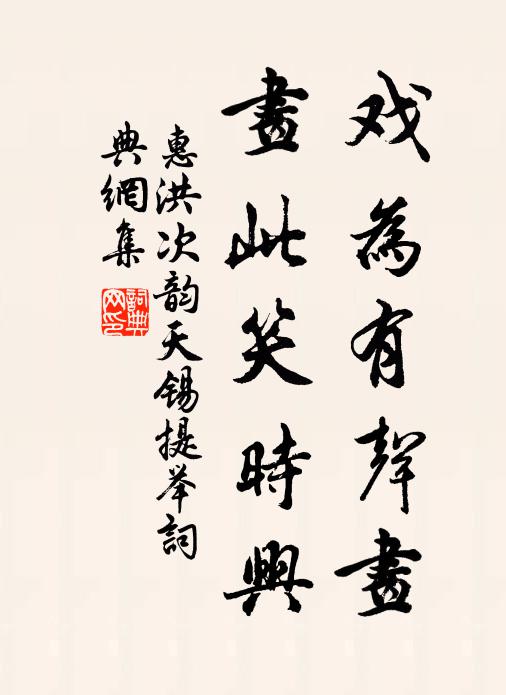 戏為有聲畫
畫此笑時興
惠洪次韵天锡提举詞
典網集
詞典網印